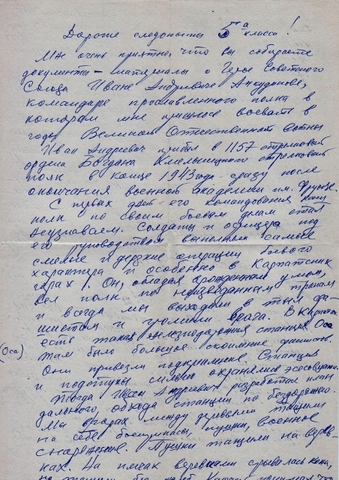 Дорогие следопыты 5го класса!
Мне очень приятно, что вы собираете
документы – материалы о Герое Советского
Союза Иване Андреевиче
командире прославленного полка в
котором мне пришлось воевать в
годы Великой Отечественной войны
Иван Андреевич принял в 1157 стрелковый
ордена Богдана Хмельницкого стрелковый
полк в конце 1943 года сразу после
окончания военной академии им. Фрунзе.
С первых дней его командования наш
полк по своим боевым делам стал
неузнаваем. Солдаты и офицера под
его руководством выполняли самые
смелые и дерзкие операции боевого
характера и особенно в Карпатских
горах! Он, обладая врожденным умом,
вел полк по
и всегда мы выходили в тыл фа-
шистам и громили врага. В Карпатах
есть такая железнодорожная станция Оса
(Оса)
Там было большое скопление фашистов.
Они привезли подкрепление. Станция
и подступы сильно охранялись эсэсовцами.
Тогда Иван Андреевич разработал план
дального обхода станции по бездорожью.
Мы в горах между деревьями тащили
на себе боеприпасы, пушки, военное
снаряжение. Пушки тащили на верев-
ках. На плечах веревками срывалась кожа,